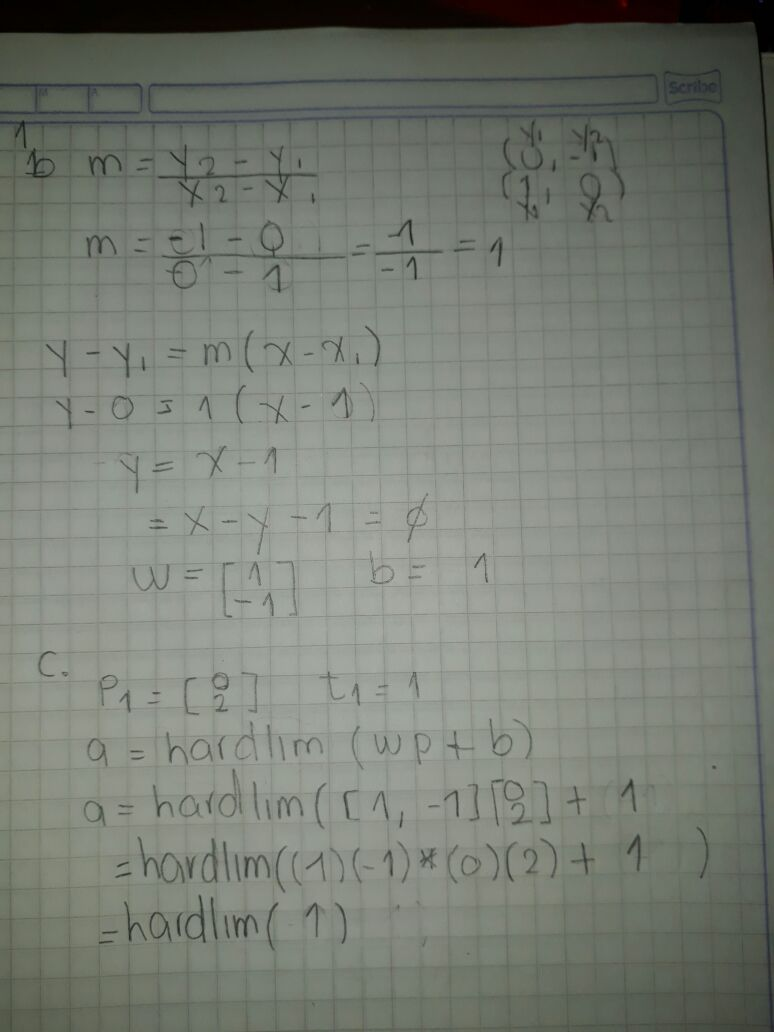 Scribe
1
b m = y2 - y1 / x2 - x1
y1 y2
(0, -1)
(1, 0)
x1 x2
m = -1 - 0 / 0 - 1 = -1 / -1 = 1
y - y1 = m(x - x1)
y - 0 = 1(x - 1)
y = x - 1
= x - y - 1 = ∅
w = [1 -1] b = 1
c.
P1 = [0 2] t1 = 1
a = hardlim (wp + b)
a = hardlim([1, -1][0 2] + 1
= hardlim((1)(-1)*(0)(2) + 1 )
= hardlim( 1)